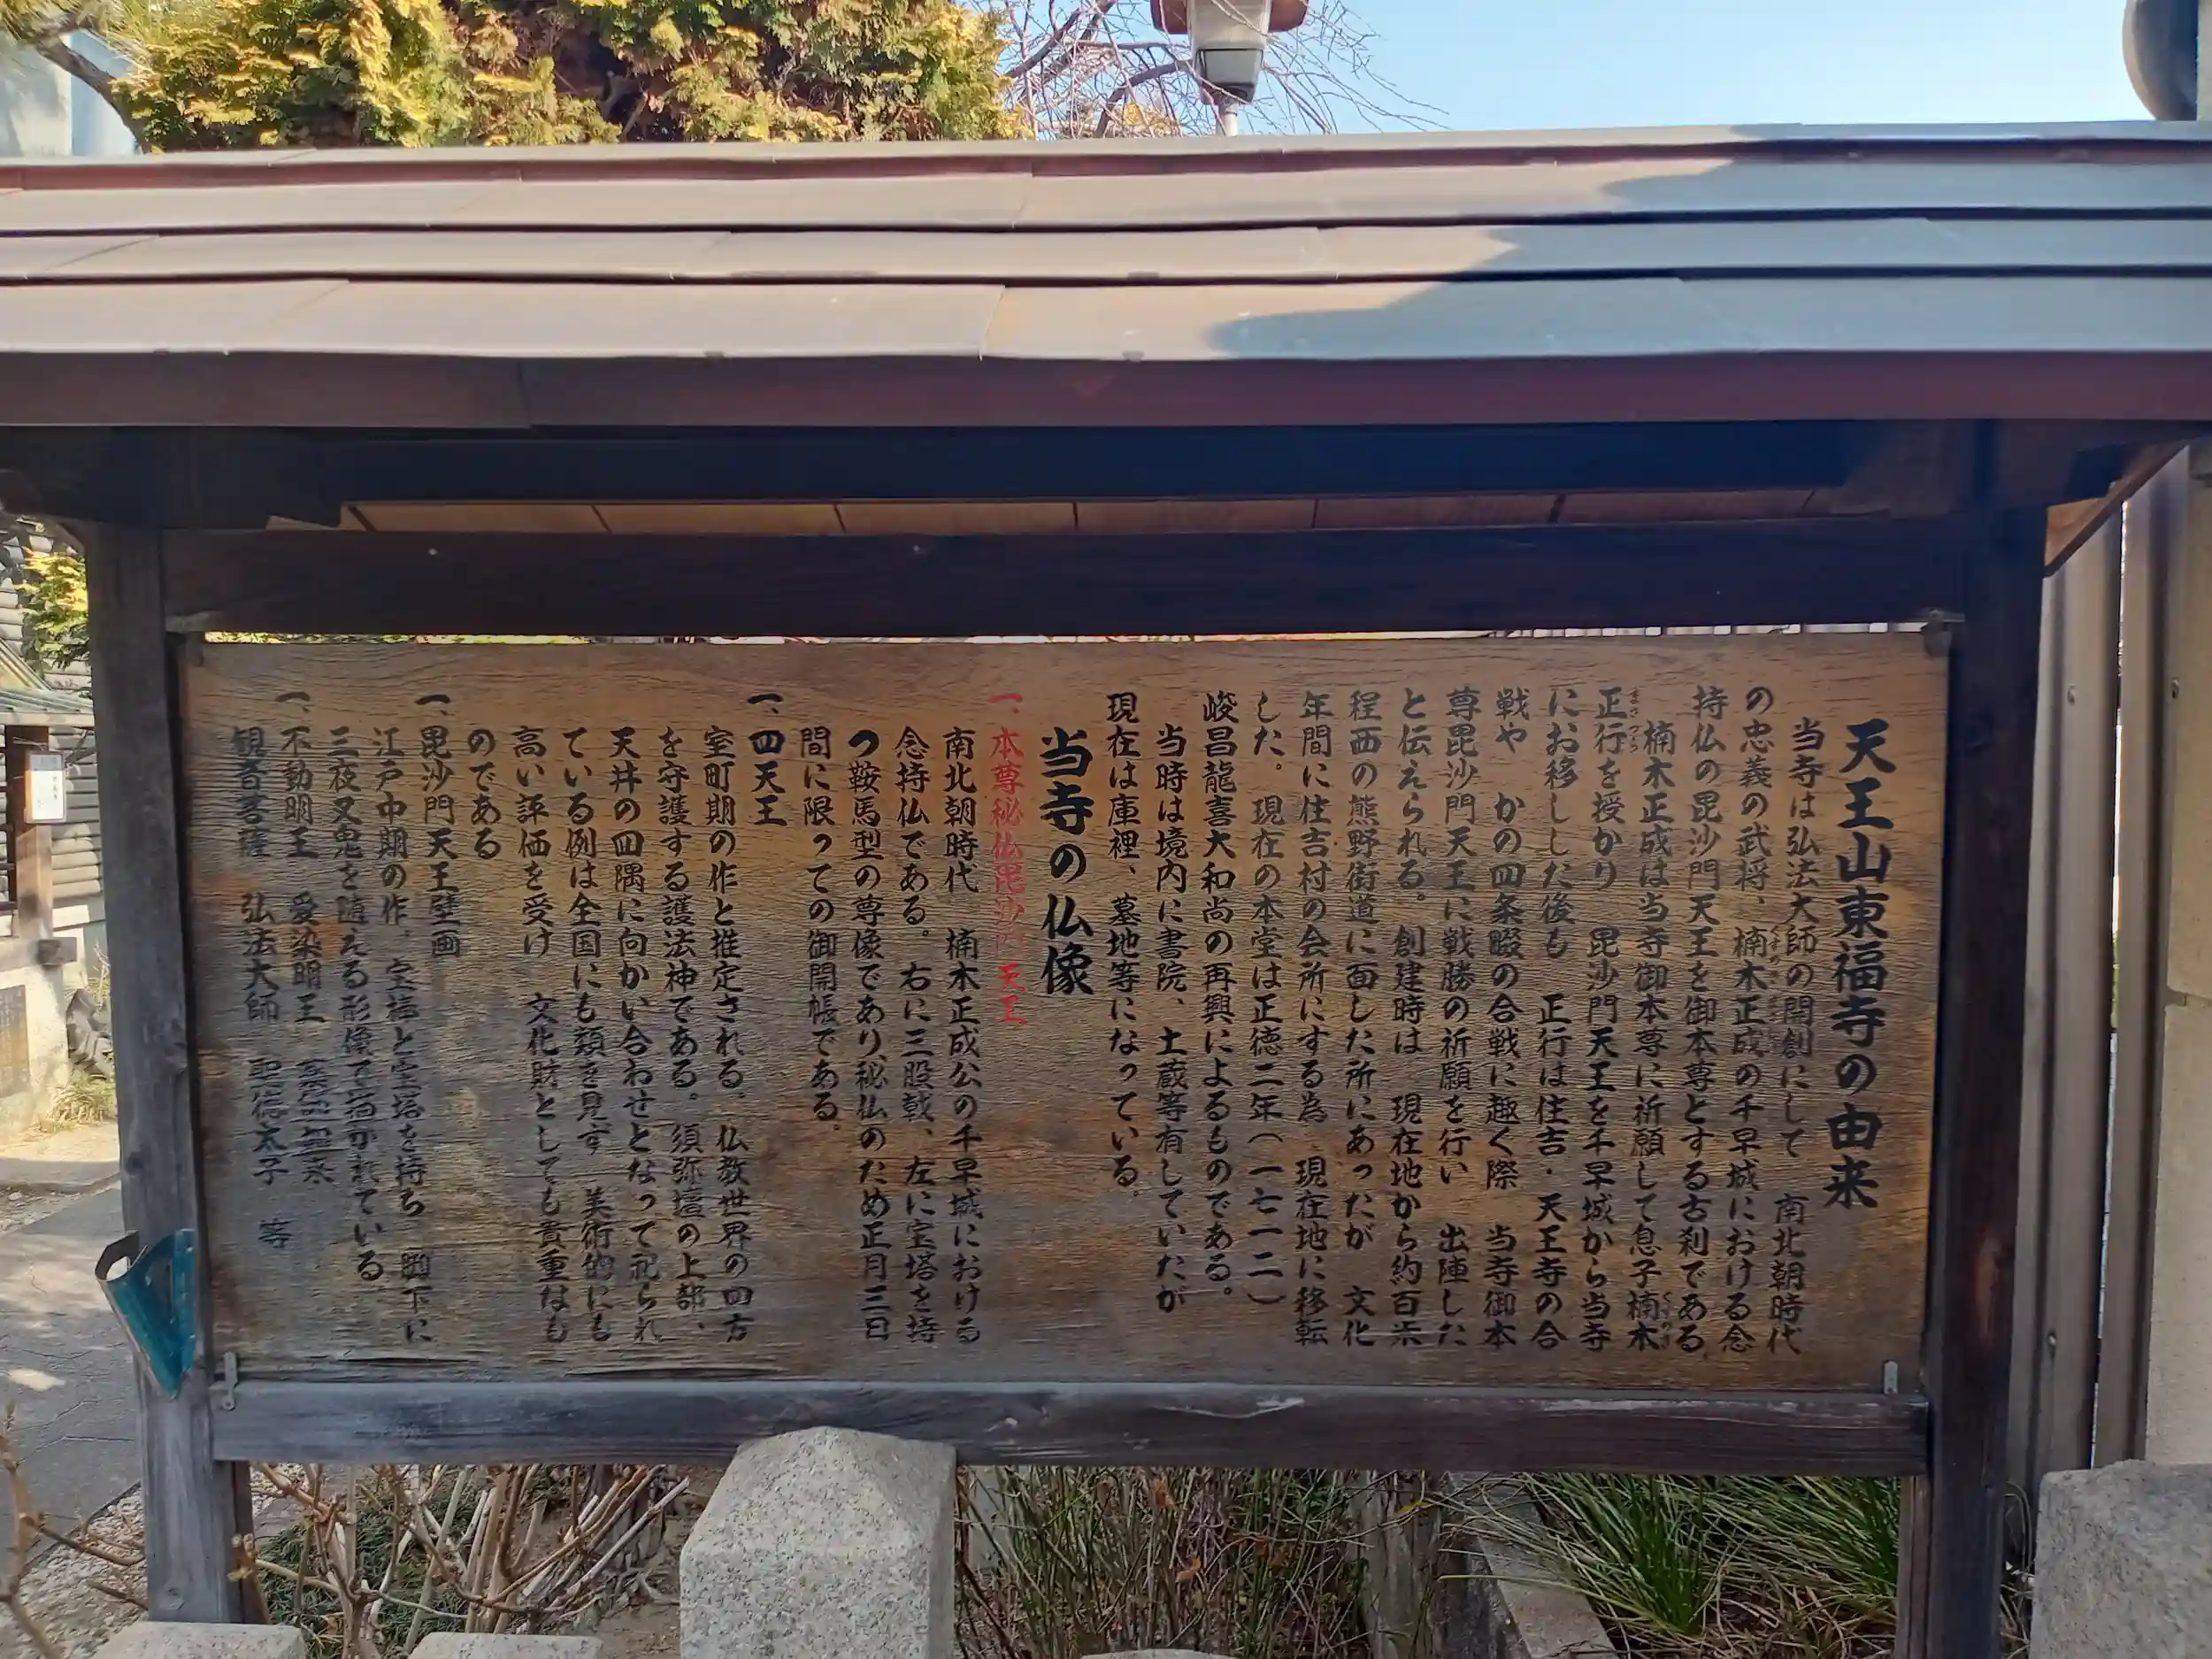 天王山東福寺の由来
当寺は弘法大師の開創にして 南北朝時代
の忠義の武将、楠木正成の千早城における念
持仏の毘沙門天王を御本尊とする古刹である
楠木正成は当寺御本尊に祈願して息子楠木
正行を授かり 毘沙門天王を千早城から当寺
にお移しした後も 正行は住吉・天王寺の合
戦や かの四条畷の合戦に趣く際 当寺御本
尊毘沙門天王に戦勝の祈願を行い 出陣した
と伝えられる。創建時は 現在地から約百米
程西の熊野街道に面した所にあったが 文化
年間に住吉村の会所にする為 現在地に移転
した。 現在の本堂は正徳二年(一七一二)
峻昌龍喜大和尚の再興によるものである。
当時は境内に書院、土蔵等有していたが
現在は庫裡、墓地等になっている。
当寺の仏像
一、本尊秘仏毘沙門天王
南北朝時代 楠木正成公の千早城における
念持仏である。 右に三股戟、左に宝塔を持
つ鞍馬型の尊像であり、秘仏のため正月三日
間に限っての御開帳である。
一、四天王
室町期の作と推定される。 仏教世界の四方
を守護する護法神である。須弥壇の上部、
天井の四隅に向かい合わせとなって祀られ
ている例は全国にも類を見ず 美術的にも
高い評価を受け 文化財としても貴重なも
のである
一、毘沙門天王壁画
江戸中期の作。 宝棒と宝塔を持ち 脚下に
三夜叉鬼を随える形像で描かれている
一、不動明王 愛染明王
観音菩薩 弘法大師 聖徳太子 等